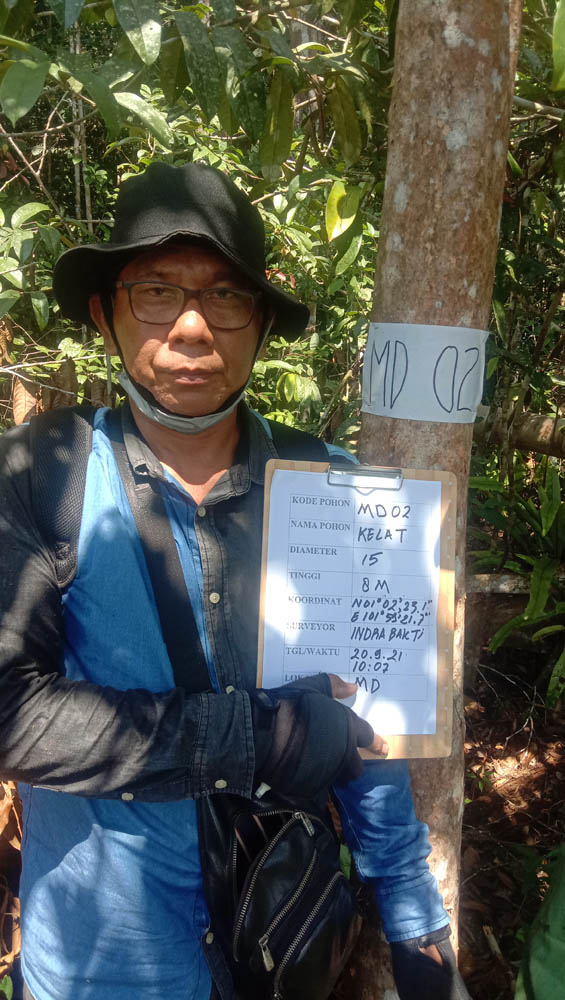 MD 02
KODE POHON MD02
NAMA POHON KELAT
DIAMETER 15
TINGGI 8 M
KOORDINAT N01° 02', 23,1"
E 101° 55' 21,2"
SURVEYOR INDRA BAKTI
TGL/WAKTU 20.9.21
10:07
MD